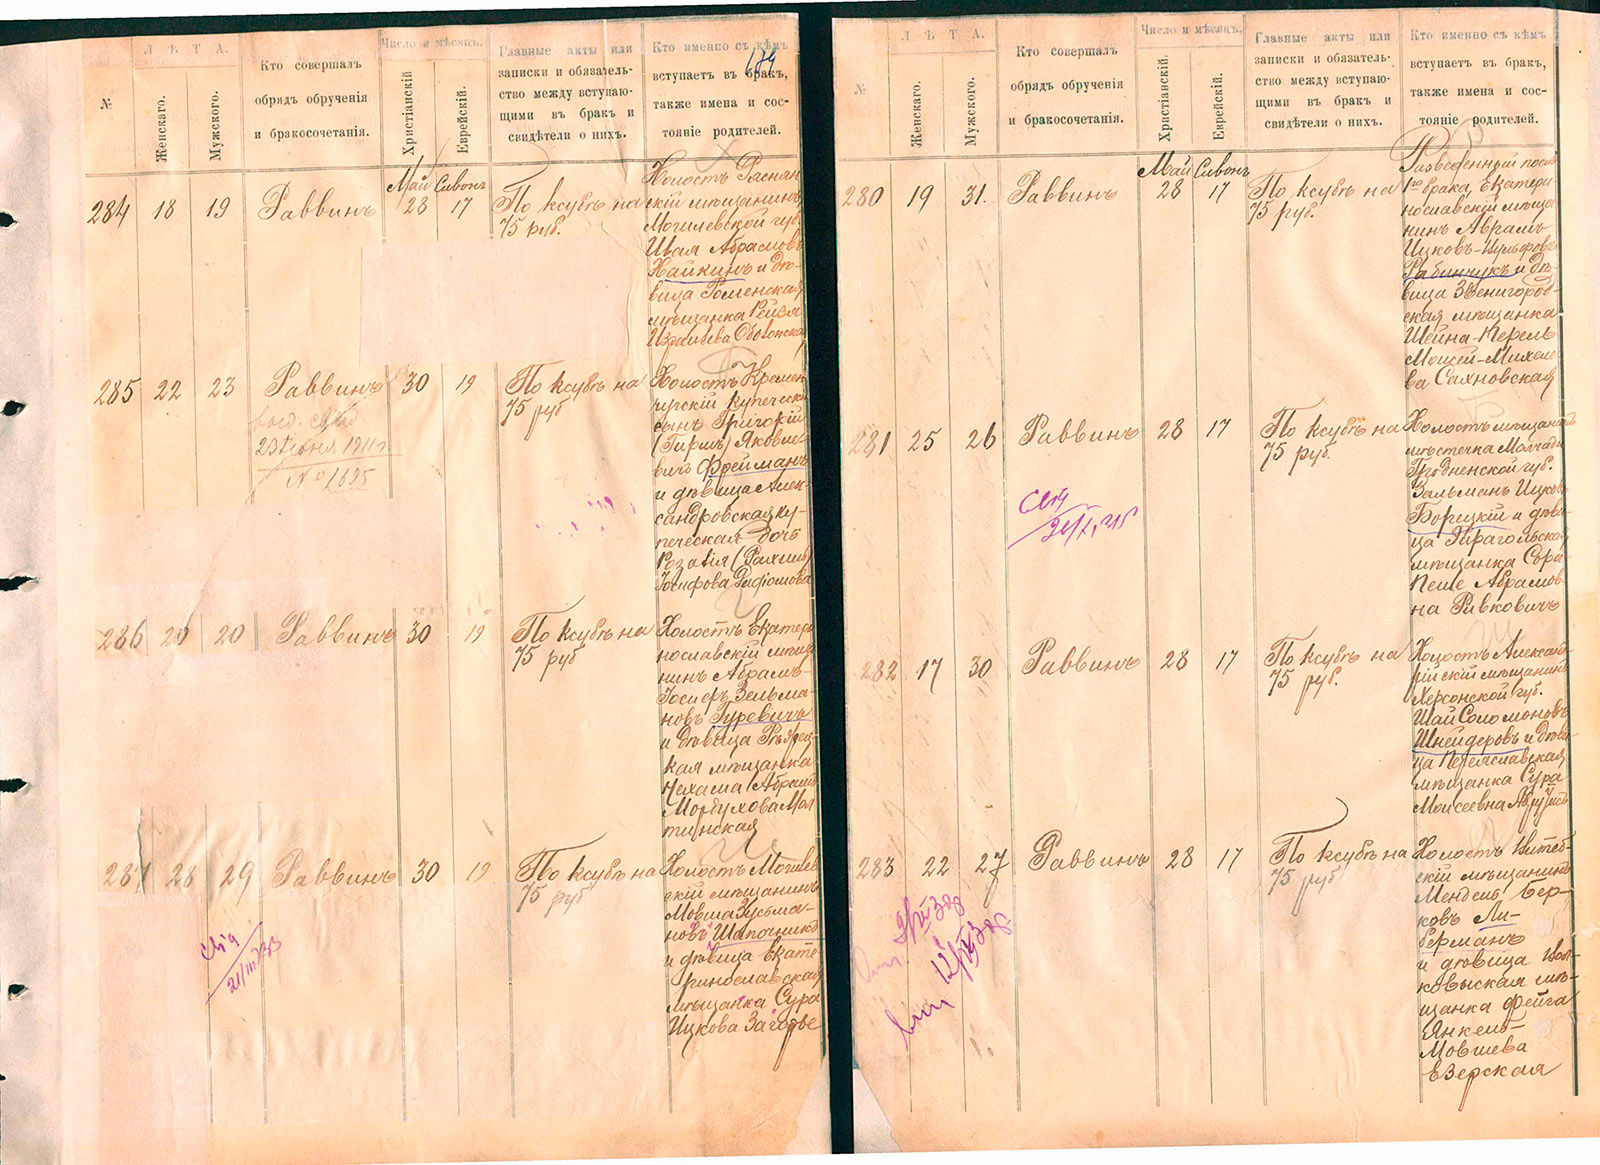 Л Ѣ Т А.
Число и мѣсяцъ.
№
Женскаго.
Мужского.
Кто совершалъ
обрядъ обрученія
и бракосочетанія.
Христіанскій
Еврейскій.
Главные акты или
записки и обязатель-
ство между вступаю-
щими въ бракъ и
свидѣтели о нихъ.
Кто именно съ кѣмъ
вступаетъ въ бракъ,
также имена и сос-
тояніе родителей.
Май Сивонъ
284 18 19 Раввинъ 28 17
По ксубѣ на
75 руб.
Холостъ
скій мѣщанинъ
Могилевской губ.
Абрамовъ
Хайкинъ и дѣ-
вица Роменская
мѣщанка Рейза
285 22 23 Раввинъ 30 19
№ 1695
По ксубѣ на
75 руб
Холостъ Кремен
чугскій купеческ
сынъ Григорій
(Гиршъ) Яковле
вичъ Фрейманъ
и дѣвица Алек-
сандровская ку-
печеская дочь
Розалія
Іосифова
286 20 20 Раввинъ 30 19
По ксубѣ на
75 руб
Холостъ Екатери
нославскій мѣща
нинъ Абрамъ-
Іосифъ Зельма-
новъ Гуревичъ
и дѣвица
кая мѣщанка
Нехама Абрамъ
Мордухова
тинская
287 28 29 Раввинъ 30 19
По ксубѣ на
75 руб
Холостъ Могилев
скій мѣщанинъ
Мовша Зусьма-
новъ Шапочник
и дѣвица Екате-
ринославская
мѣщанка Сура
Ицкова
Л Ѣ Т А.
Число и мѣсяцъ.
№
Женскаго.
Мужского.
Кто совершалъ
обрядъ обрученія
и бракосочетанія.
Христіанскій.
Еврейскій.
Главные акты или
записки и обязатель-
ство между вступаю-
щими въ бракъ и
свидѣтели о нихъ.
Кто именно съ кѣмъ
вступаетъ въ бракъ,
также имена и сос-
тояніе родителей.
Май Сивонъ
280 19 31. Раввинъ 28 17
По ксубѣ на
75 руб.
Разведенный послѣ
1го брака Екатери
нославскій мѣща
нинъ Аврамъ
Ицковъ-Вульфовъ
Рабинчукъ и дѣ-
вица Звенигород-
ская мѣщанка
Шейна-Перель
Моисей-Михеле
ва Сахновская
281 25 26 Раввинъ 28 17
По ксубѣ на
75 руб.
Холостъ мѣщанинъ
мѣстечка Молчадь
Гродненской губ.
Зальманъ Ицков
Борецкій и дѣви
ца Гирагольская
мѣщанка Сора
Пеше Абрамов
на Ривковичъ
282 17 30 Раввинъ 28 17
По ксубѣ на
75 руб.
Холостъ Александ
рійскій мѣщанинъ
Херсонской губ.
Шай Соломоновъ
Шнейдеровъ и дѣви
ца Переяславская
мѣщанка Сура
Моисеевна
283 22 27 Раввинъ 28 17
По ксубѣ на
75 руб
Холостъ Витеб-
скій мѣщанинъ
Мендель Бер-
ковъ Ли-
берманъ
и дѣвица Вол-
ковыская мѣ-
щанка Фейга
Янкель-
Мовшева
Езерская